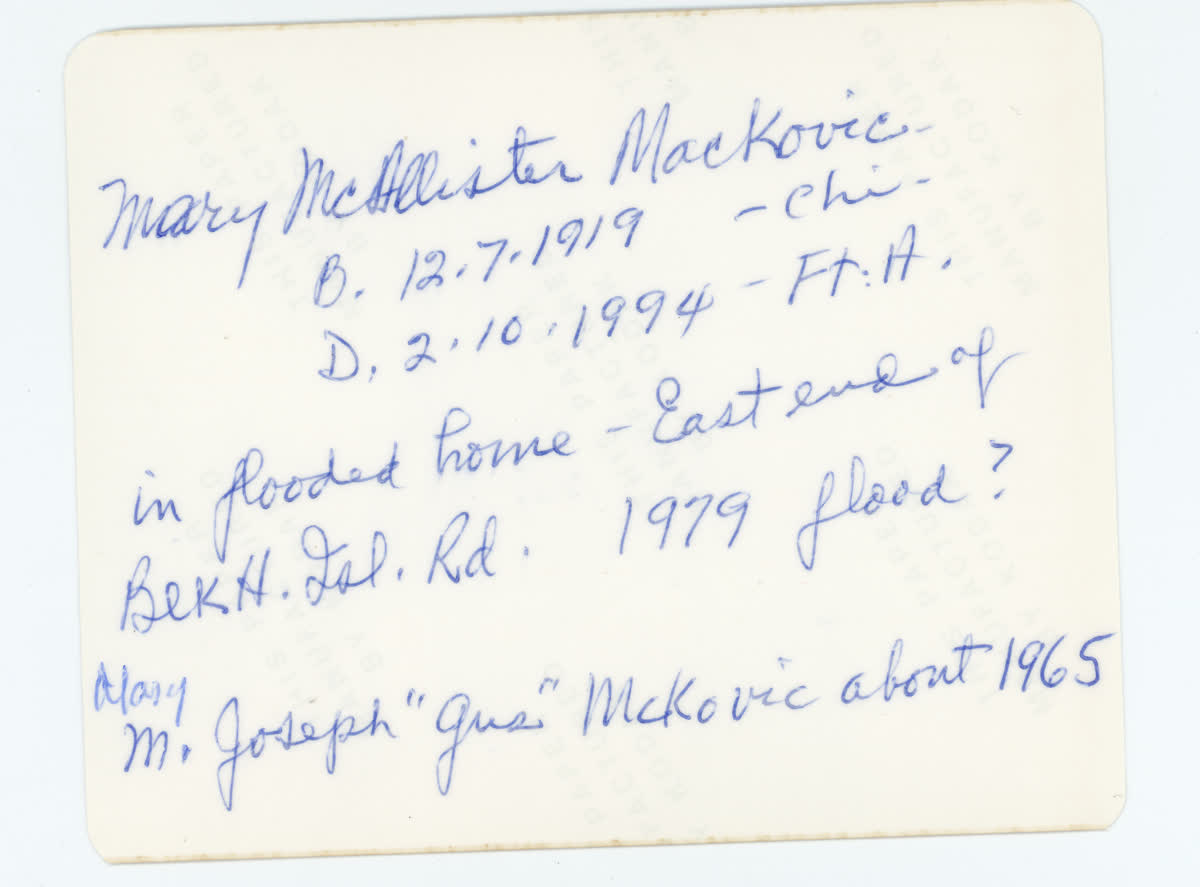 Mary McAllister Mackovic
B. 12.7.1919 - Chi-
D. 2.10.1994 - Ft. A.
in flooded home - East end of
BlkH. Isl. Rd. 1979 flood?
Mary
M. Joseph "Gus" McKovic about 1965
THIS PAPER
MANUFACTURED
BY KODAK